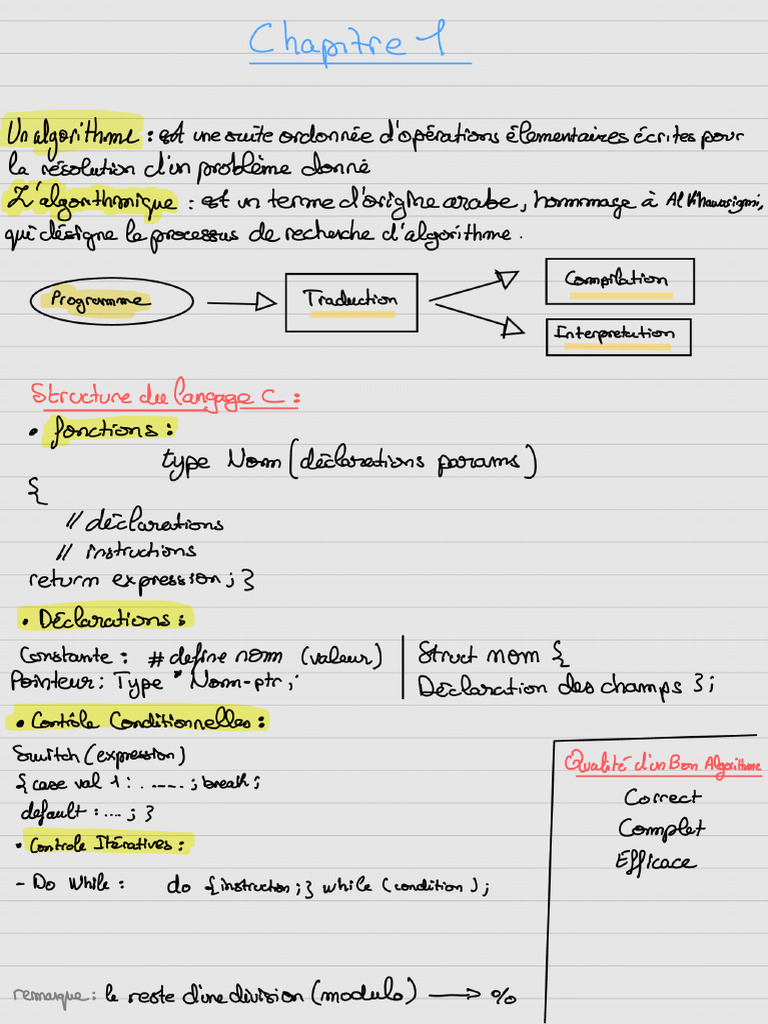 Chapitre 1
Un algorithme : est une suite ordonnée d'opérations élementaires écrites pour
la résolution d'un problème donné
L'algorithmique : est un terme d'origine arabe, hommage à Al Khawarizmi,
qui désigne le processus de recherche d'algorithme.
Programme
Traduction
Compilation
Interpretation
Structure du langage C :
• fonctions :
type Nom (déclarations params)
{
// déclarations
// instructions
return expression ; }
• Déclarations :
Constante : # define nom (valeur)
Pointeur : Type * Nom-ptr ;
Struct nom {
Déclaration des champs } ;
• Contôle Conditionnelles :
Switch (expression)
{ case val 1 : ..... ; break ;
default : .... ; }
• Controle Itératives :
- Do While : do { instructon ; } while (condition) ;
Qualité d'un Bon Algorithme
Correct
Complet
Efficace
remarque : le reste d'une division (modulo) → %